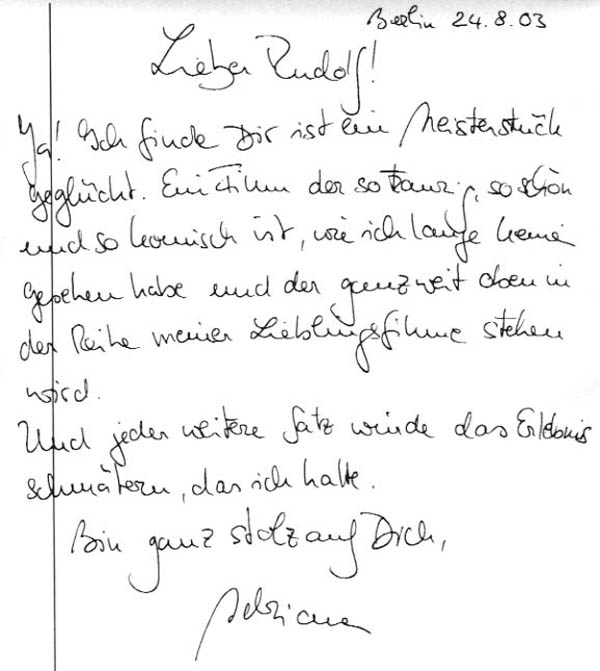 Berlin 24.8.03
Lieber Rudolf!
Ja! Ich finde Dir ist ein Meisterstück
geglückt. Ein Film der so traurig, so schön
und so komisch ist, wie ich lange keinen
gesehen habe und der ganz weit oben in
der Reihe meiner Lieblingsfilme stehen
wird.
Und jeder weitere Satz würde das Erlebnis
schmälern, das ich hatte.
Bin ganz stolz auf Dich,
Adriana